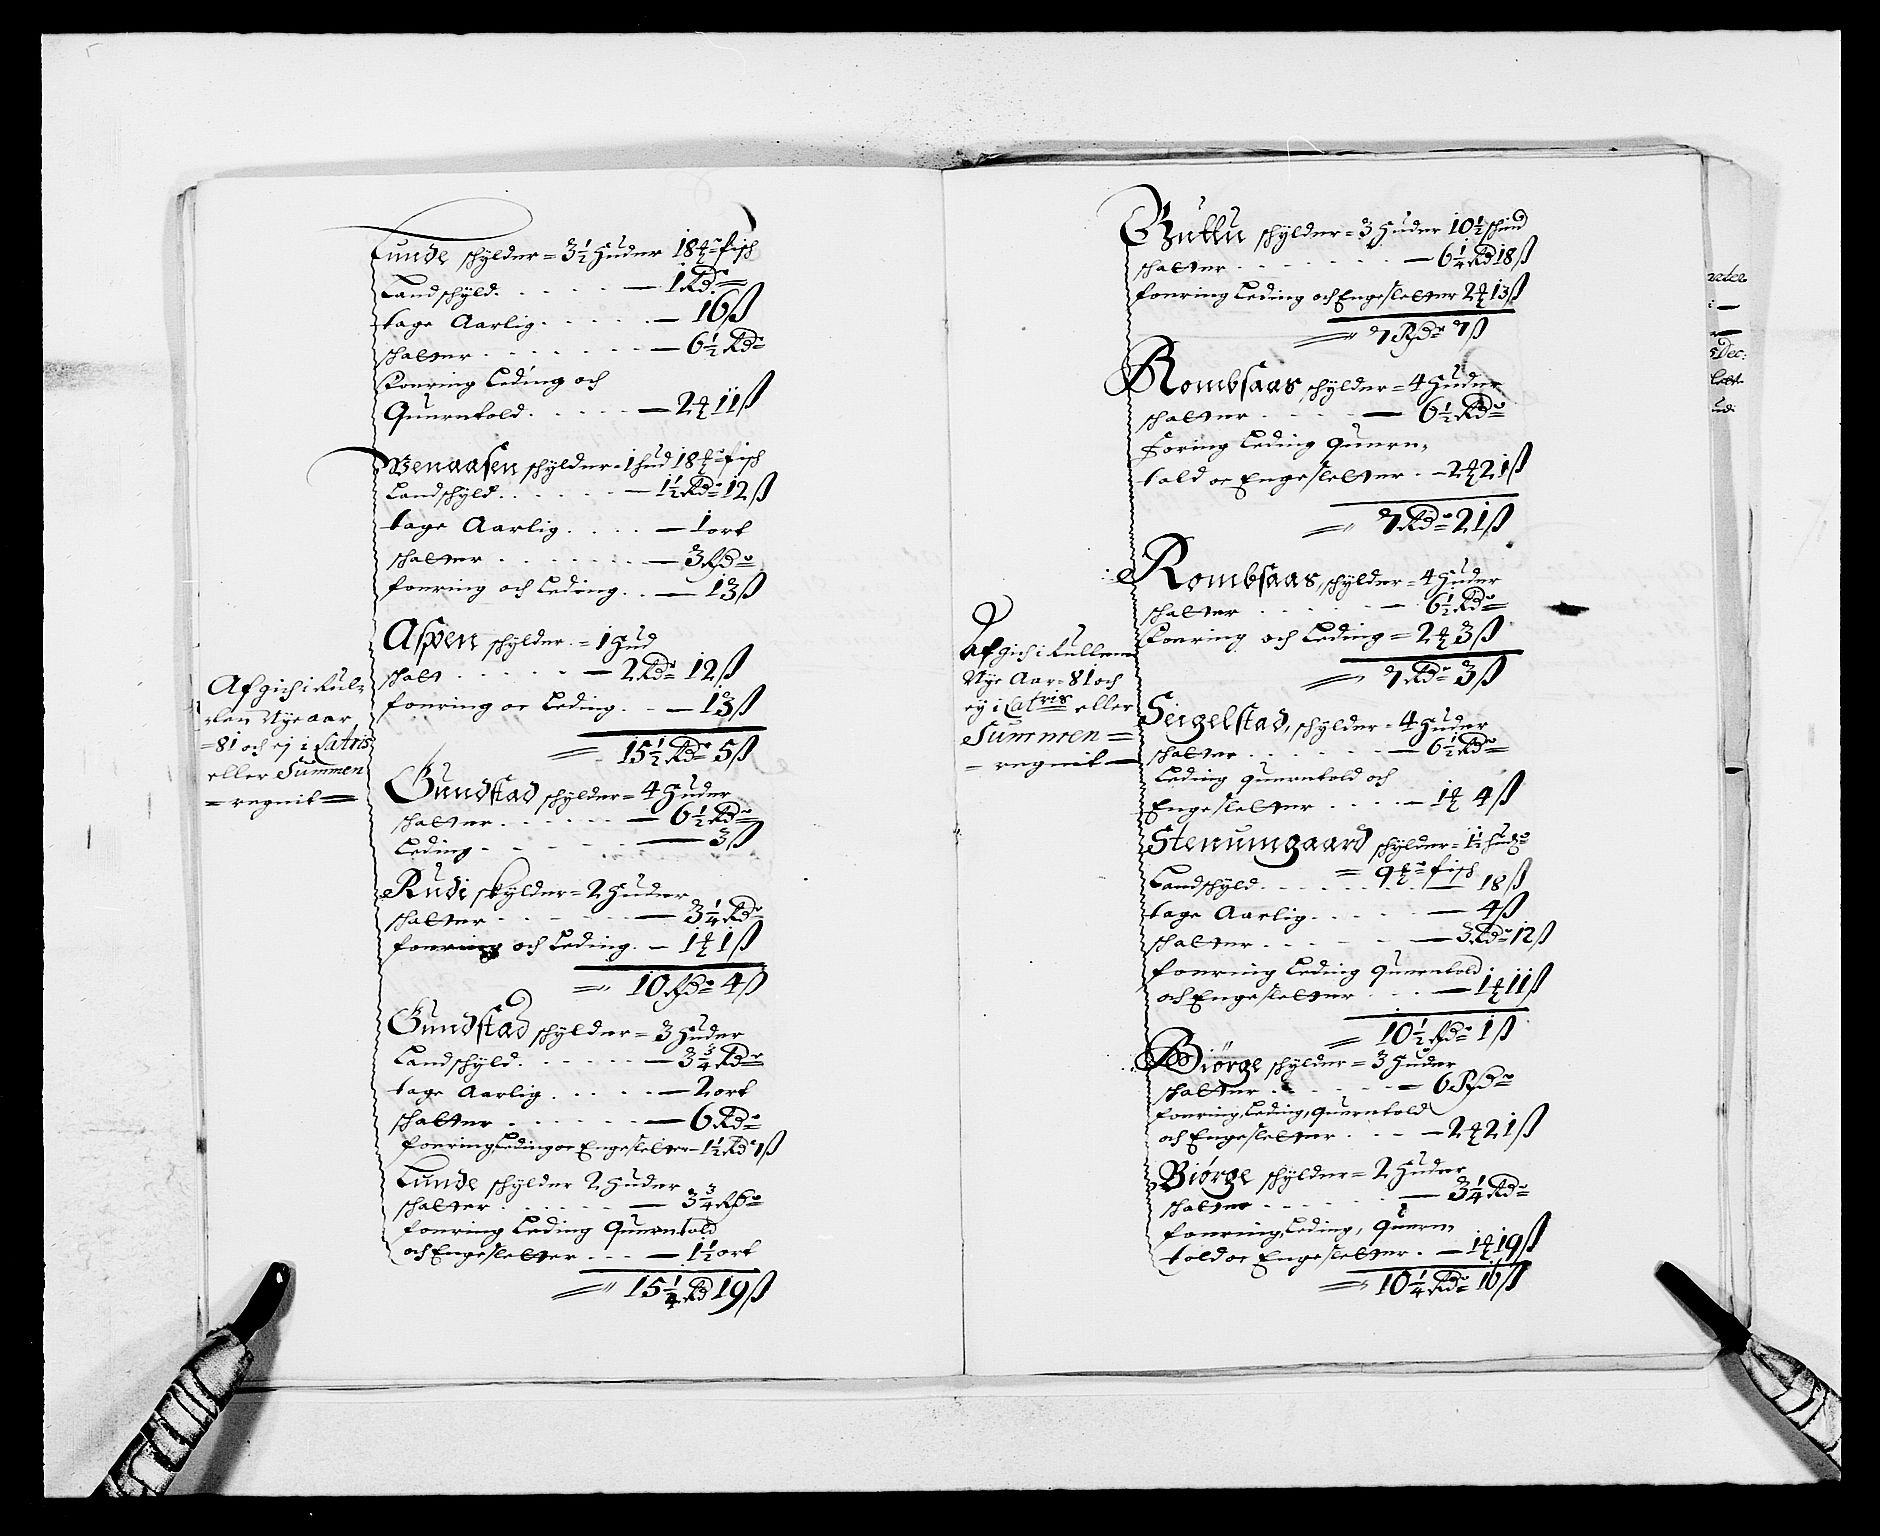 Lunde schylder = 3½ Huder 18 ¼ fisch
Landschyld. — 1 Rdr
tage Aarlig. — 16 ß
schatter — 6½ Rdr
Foering Leding och
Querntold. — 2 ¼ 11 ß
Venaasen schylder = 1 hud 18 ¼ fisch
Landschyld. — 1½ Rdr 12 ß
tage Aarlig. — 1 ort
schatter — 3 Rdr
foering och Leding. — 13 ß
Aspen schylder. = 1 Hud
schatt — 2 Rdr 12 ß
foering oc Leding. — 13 ß
= 15½ Rdr 5 ß
Afgich i Rul-
len Nye aar
= 81 och ej i Latris
eller Summen
= regnit =
Gundstad schylder = 4 Huder
schatter — 6½ Rdr
Leding — 3 ß
Rudi skylder = 2 Huder
schatter — 3¼ Rdr
foering och Leding. — 1 ¼ 1 ß
= 10 Rdr 4 ß
Gundstad schylder = 3 Huder
Landschyld. — 3¾ Rdr
tage Aarlig. — 2 ort
schatter — 6 Rdr
foering, Leding oc Engesletter — 1½ Rd 1 ß
Lunde schylder 2 Huder
schatter — 3¾ Rdr
foering Leding Querntold
och Engesletter — 1½ ort
= 15¼ Rd 19 ß
schylder = 3 Huder 10½ schind
schatter — 6¼ Rd 18 ß
foering Leding och Engesletter 2 ¼ 13 ß
= 7 Rdr 7 ß
Rombsaas schylder = 4 Huder
schatter — 6½ Rdr
Foring Leding Quern-
told oc Engesletter — 2 ¼ 21 ß
= 7 Rdr 21 ß
Rombsaas, schylder = 4 Huder
schatter — 6½ Rdr
Foering och Leding = 2 ¼ 3 ß
= 7 Rdr 3 ß
Afgich i Rullen
Nye Aar = 81 och
ej i Latris eller
Summen =
= regnit —
Seigelstad, schylder = 4 Huder
schatter — 6½ Rdr
Leding Querntold och
Engesletter — 1 ¼ 4 ß
Stenumgaard schylder = 1½ hud
= 9 ¼ fisch
Landschyld. — 18 ß
tage Aarlig. — 4 ß
schatter — 3 Rdr 12 ß
foering Leding Querntold
och Engesletter — 1 ¼ 11 ß
= 10½ Rdr 1 ß
Biørge schylder = 3 Huder
schatter — 6 Rdr
foering, Leding, Querntold
och Engesletter — 2 ¼ 21 ß
Biørge schylder = 2 Huder
schatter — 3¼ Rdr
foering, Leding, Quern-
told oc Engesletter. — 1 ¼ 19 ß
= 10¼ Rdr 16 ß